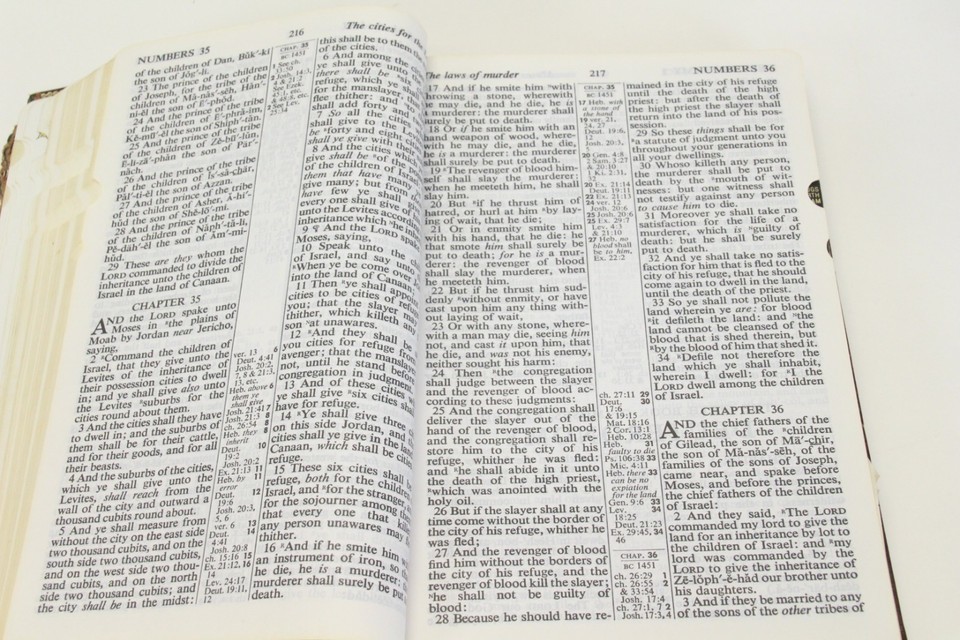 NUMBERS 35
216
The cities for the
of the children of Dan, Bŭk´-kī
the son of Jŏg´-lī.
23 The prince of the children
of Joseph, for the tribe of the
children of Mă-năs´-sĕh, Hăn´-
nĭ-ĕl the son of E´-phŏd.
24 And the prince of the tribe
of the children of E´-phră-ĭm,
Kĕ-mū´-ĕl the son of Shĭph´-tăn.
25 And the prince of the tribe
of the children of Zĕ-bū´-lŭn,
E-lĭ-ză´-phăn the son of Pär´-
năch.
26 And the prince of the tribe
of the children of Ĭs´-să-chär,
Păl´-tĭ-ĕl the son of Azzan.
27 And the prince of the tribe
of the children of Asher, Ă-hī´-
hŭd the son of Shĕ-lō´-mī.
28 And the prince of the tribe
of the children of Năph´-tă-lī,
Pĕ-dăh´-ĕl the son of Ăm´-mī-
hŭd.
29 These are they whom the
LORD commanded to divide the
inheritance unto the children of
Israel in the land of Canaan.
CHAPTER 35
AND the LORD spake unto
Moses in the plains of
Moab by Jordan near Jericho,
saying,
2 Command the children of
Israel, that they give unto the
Levites of the inheritance of
their possession cities to dwell
in; and ye shall give also unto
the Levites suburbs for the
cities round about them.
3 And the cities shall they have
to dwell in; and the suburbs of
them shall be for their cattle,
and for their goods, and for all
their beasts.
4 And the suburbs of the cities,
which ye shall give unto the
Levites, shall reach from the
wall of the city and outward a
thousand cubits round about.
5 And ye shall measure from
without the city on the east side
two thousand cubits, and on the
south side two thousand cubits,
and on the west side two thou-
sand cubits, and on the north
side two thousand cubits; and
the city shall be in the midst:
CHAP. 35
BC 1451
ver. 13 6
Deut. 4:41
Josh. 20:2,
7, 8 & 21:3,
13, etc.
Heb. above 6
them ye
shall give
Josh. 21:41 7
Josh. 21:3 8
ch. 26:54 8
Heb. they 8
inherit
Deut. 10
19:2
Josh. 20:2
Ex. 21:13 11
Heb. by 11
error
Deut. 12
19:6
Josh. 20:3,
5, 6
ver. 6 13
Deut. 14
4:41
Josh. 20:8
ch. 15:16 15
Ex. 21:12, 16
14
Lev. 24:17
Deut. 19:11,
12
this shall be to them the
of the cities.
6 And among the
ye shall give unto the
there shall be six
refuge, which ye shall
for the manslayer, that
flee thither: and
shall add forty and
7 So all the cities
shall give to the Levites
be forty and eight cities
shall ye give with their
8 And the cities which
give shall be of the
of the children of Israel:
them that have
give many; but from
have few ye shall
every one shall give
unto the Levites according
inheritance which he
9 ¶ And the LORD spake
Moses, saying,
10 Speak unto the
of Israel, and say unto
When ye be come over
into the land of Canaan,
11 Then ye shall appoint
cities to be cities of refuge
you; that the slayer may
thither, which killeth any
son at unawares.
12 And they shall be
you cities for refuge from
avenger; that the manslayer
not, until he stand before
congregation in judgment.
13 And of these cities which
ye shall give six cities shall
have for refuge.
14 Ye shall give three
on this side Jordan, and
cities shall ye give in the land
Canaan, which shall be cities
refuge.
15 These six cities shall
refuge, both for the children
Israel, and for the stranger,
for the sojourner among them:
that every one that killeth
any person unawares may
thither.
16 And if he smite him
an instrument of iron, so
he die, he is a murderer:
murderer shall surely be put
death.
The laws of murder
217
NUMBERS 36
17 And if he smite him with
throwing a stone, wherewith
he may die, and he die, he is
a murderer: the murderer shall
surely be put to death.
18 Or if he smite him with an
hand weapon of wood, where-
with he may die, and he die,
he is a murderer: the murderer
shall surely be put to death.
19 The revenger of blood him-
self shall slay the murderer:
when he meeteth him, he shall
slay him.
20 But if he thrust him of
hatred, or hurl at him by lay-
ing of wait, that he die;
21 Or in enmity smite him
with his hand, that he die: he
that smote him shall surely be
put to death; for he is a mur-
derer: the revenger of blood
shall slay the murderer, when
he meeteth him.
22 But if he thrust him sud-
denly without enmity, or have
cast upon him any thing with-
out laying of wait,
23 Or with any stone, where-
with a man may die, seeing him
not, and cast it upon him, that
he die, and was not his enemy,
neither sought his harm:
24 Then the congregation
shall judge between the slayer
and the revenger of blood ac-
cording to these judgments:
25 And the congregation shall
deliver the slayer out of the
hand of the revenger of blood,
and the congregation shall re-
store him to the city of his
refuge, whither he was fled:
and he shall abide in it unto
the death of the high priest,
which was anointed with the
holy oil.
26 But if the slayer shall at any
time come without the border of
the city of his refuge, whither he
was fled;
27 And the revenger of blood
find him without the borders of
the city of his refuge, and the
revenger of blood kill the slayer;
he shall not be guilty of
blood:
28 Because he should have re-
CHAP. 35
BC 1451
17 Heb. with
a stone of
the hand
19 ver. 21,
24, 27
Deut. 19:6,
12
Josh. 20:3,
5
20 Gen. 4:8
2 Sam. 3:27
& 20:10
1 Ki. 2:31,
32
20 Ex. 21:14
Deut. 19:11
22 Ex. 21:13
24 ver. 12
Josh. 20:6
25 Josh. 20:6
25 Ex. 29:7
Lev. 4:3
& 21:10
27 Heb. no
blood shall
be to him,
Ex. 22:2
ch. 27:11 29
Deut. 30
17:6
& 19:15
Mat. 18:16
2 Cor. 13:1
Heb. 10:28
Heb. 31
faulty to die
Ps. 106:38 33
Mic. 4:11
Heb. there 33
can be no
expiation
for the land
Gen. 9:6 33
Lev. 34
18:25
Deut. 21:23
Ex. 29:45, 34
46
CHAP. 36
BC 1451
ch. 26:29 1
ch. 26:55 2
& 33:54
Josh. 17:4
ch. 27:1, 7 2
Josh. 17:3, 4
mained in the city of his refuge
until the death of the high
priest: but after the death of
the high priest the slayer shall
return into the land of his pos-
session.
29 So these things shall be for
a statute of judgment unto you
throughout your generations in
all your dwellings.
30 Whoso killeth any person,
the murderer shall be put to
death by the mouth of wit-
nesses: but one witness shall
not testify against any person
to cause him to die.
31 Moreover ye shall take no
satisfaction for the life of a
murderer, which is guilty of
death: but he shall be surely
put to death.
32 And ye shall take no satis-
faction for him that is fled to the
city of his refuge, that he should
come again to dwell in the land,
until the death of the priest.
33 So ye shall not pollute the
land wherein ye are: for blood
it defileth the land: and the
land cannot be cleansed of the
blood that is shed therein, but
by the blood of him that shed it.
34 Defile not therefore the
land which ye shall inhabit,
wherein I dwell: for I the
LORD dwell among the children
of Israel.
CHAPTER 36
AND the chief fathers of the
families of the children
of Gilead, the son of Mā´-chĭr,
the son of Mă-năs´-sĕh, of the
families of the sons of Joseph,
came near, and spake before
Moses, and before the princes,
the chief fathers of the children
of Israel:
2 And they said, The LORD
commanded my lord to give the
land for an inheritance by lot to
the children of Israel: and my
lord was commanded by the
LORD to give the inheritance of
Zĕ-lŏph´-ĕ-hăd our brother unto
his daughters.
3 And if they be married to any
of the sons of the other tribes of